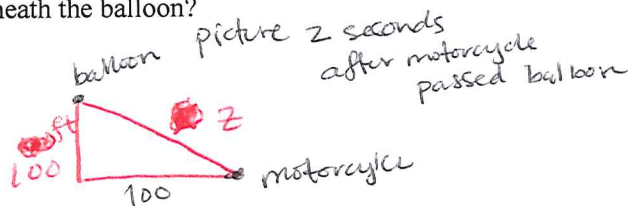 neath the balloon?
picture 2 seconds
after motorcycle
passed balloon
balloon
ft
100
z
100
motorcyice